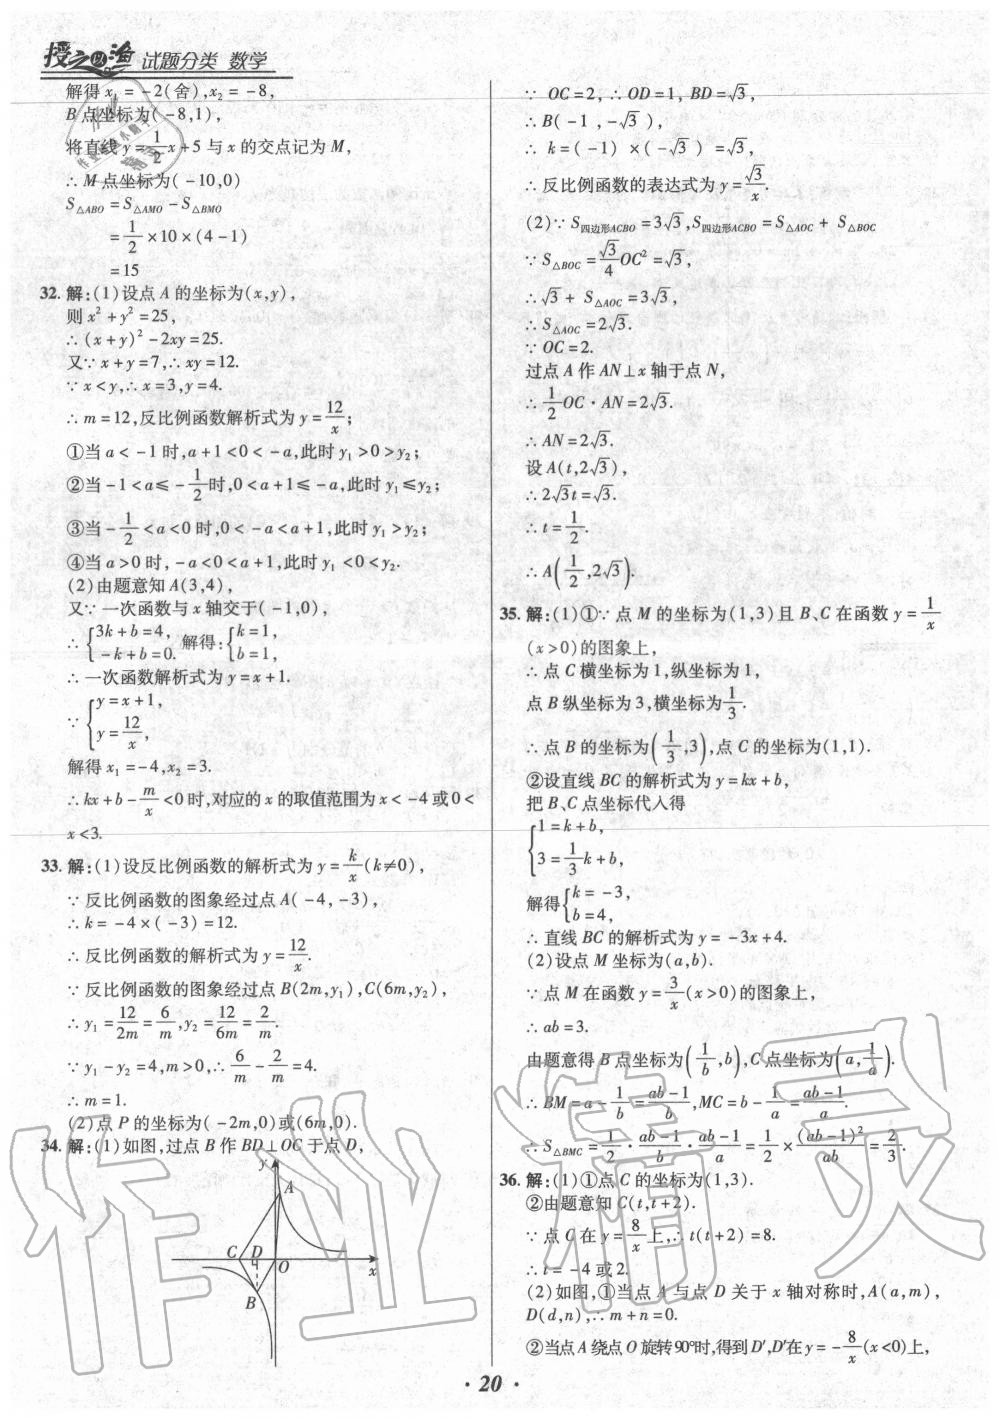 授之以渔 试题分类 数学
解得 x₁ = -2(舍), x₂ = -8,
B 点坐标为( -8,1),
将直线 y = 1/2 x + 5 与 x 的交点记为 M,
∴ M 点坐标为( -10,0)
S△ABO = S△AMO - S△BMO
= 1/2 × 10 × (4 - 1)
= 15
32. 解:(1)设点 A 的坐标为(x,y),
则 x² + y² = 25,
∴ (x + y)² - 2xy = 25.
又∵ x + y = 7,∴ xy = 12.
∵ x < y,∴ x = 3,y = 4.
∴ m = 12,反比例函数解析式为 y = 12/x;
①当 a < -1 时,a + 1 < 0 < -a,此时 y₁ > 0 > y₂;
②当 -1 < a ≤ -1/2 时,0 < a + 1 ≤ -a,此时 y₁ ≤ y₂;
③当 -1/2 < a < 0 时,0 < -a < a + 1,此时 y₁ > y₂;
④当 a > 0 时, -a < 0 < a + 1,此时 y₁ < 0 < y₂.
(2)由题意知 A(3,4),
又∵ 一次函数与 x 轴交于( -1,0),
∴ {3k + b = 4, -k + b = 0. 解得:{k = 1, b = 1,
∴ 一次函数解析式为 y = x + 1.
∵ {y = x + 1, y = 12/x,
解得 x₁ = -4,x₂ = 3.
∴ kx + b - m/x < 0 时,对应的 x 的取值范围为 x < -4 或 0 <
x < 3.
33. 解:(1)设反比例函数的解析式为 y = k/x (k ≠ 0),
∵ 反比例函数的图象经过点 A( -4, -3),
∴ k = -4 × ( -3) = 12.
∴ 反比例函数的解析式为 y = 12/x.
∵ 反比例函数的图象经过点 B(2m,y₁),C(6m,y₂),
∴ y₁ = 12/2m = 6/m, y₂ = 12/6m = 2/m.
∵ y₁ - y₂ = 4,m > 0,∴ 6/m - 2/m = 4.
∴ m = 1.
(2)点 P 的坐标为( -2m,0)或(6m,0).
34. 解:(1)如图,过点 B 作 BD⊥OC 于点 D,
y
A
C D
O x
B
∵ OC = 2,∴ OD = 1, BD = √3,
∴ B( -1 , -√3 ),
∴ k = ( -1) × ( -√3 ) = √3,
∴ 反比例函数的表达式为 y = √3/x.
(2)∵ S四边形ACBO = 3√3, S四边形ACBO = S△AOC + S△BOC
∵ S△BOC = √3/4 OC² = √3,
∴ √3 + S△AOC = 3√3,
∴ S△AOC = 2√3.
∵ OC = 2.
过点 A 作 AN⊥x 轴于点 N,
∴ 1/2 OC·AN = 2√3.
∴ AN = 2√3.
设 A(t,2√3),
∴ 2√3 t = √3.
∴ t = 1/2.
∴ A(1/2,2√3).
35. 解:(1)①∵ 点 M 的坐标为(1,3)且 B、C 在函数 y = 1/x
(x > 0)的图象上,
∴ 点 C 横坐标为 1,纵坐标为 1,
点 B 纵坐标为 3,横坐标为 1/3.
∴ 点 B 的坐标为(1/3,3),点 C 的坐标为(1,1).
②设直线 BC 的解析式为 y = kx + b,
把 B、C 点坐标代入得
{1 = k + b, 3 = 1/3 k + b,
解得{k = -3, b = 4,
∴ 直线 BC 的解析式为 y = -3x + 4.
(2)设点 M 坐标为(a,b).
∵ 点 M 在函数 y = 3/x (x > 0)的图象上,
∴ ab = 3.
由题意得 B 点坐标为(1/b,b),C 点坐标为(a,1/a).
∴ BM = a - 1/b = (ab - 1)/b, MC = b - 1/a = (ab - 1)/a.
∴ S△BMC = 1/2 · (ab - 1)/b · (ab - 1)/a = 1/2 × (ab - 1)²/ab = 2/3.
36. 解:(1)①点 C 的坐标为(1,3).
②由题意知 C(t,t + 2).
∵ 点 C 在 y = 8/x 上,∴ t(t + 2) = 8.
∴ t = -4 或 2.
(2)如图,①当点 A 与点 D 关于 x 轴对称时,A(a,m),
D(d,n),∴ m + n = 0.
②当点 A 绕点 O 旋转 90°时,得到 D′,D′在 y = -8/x (x < 0)上,
· 20 ·
作业精灵